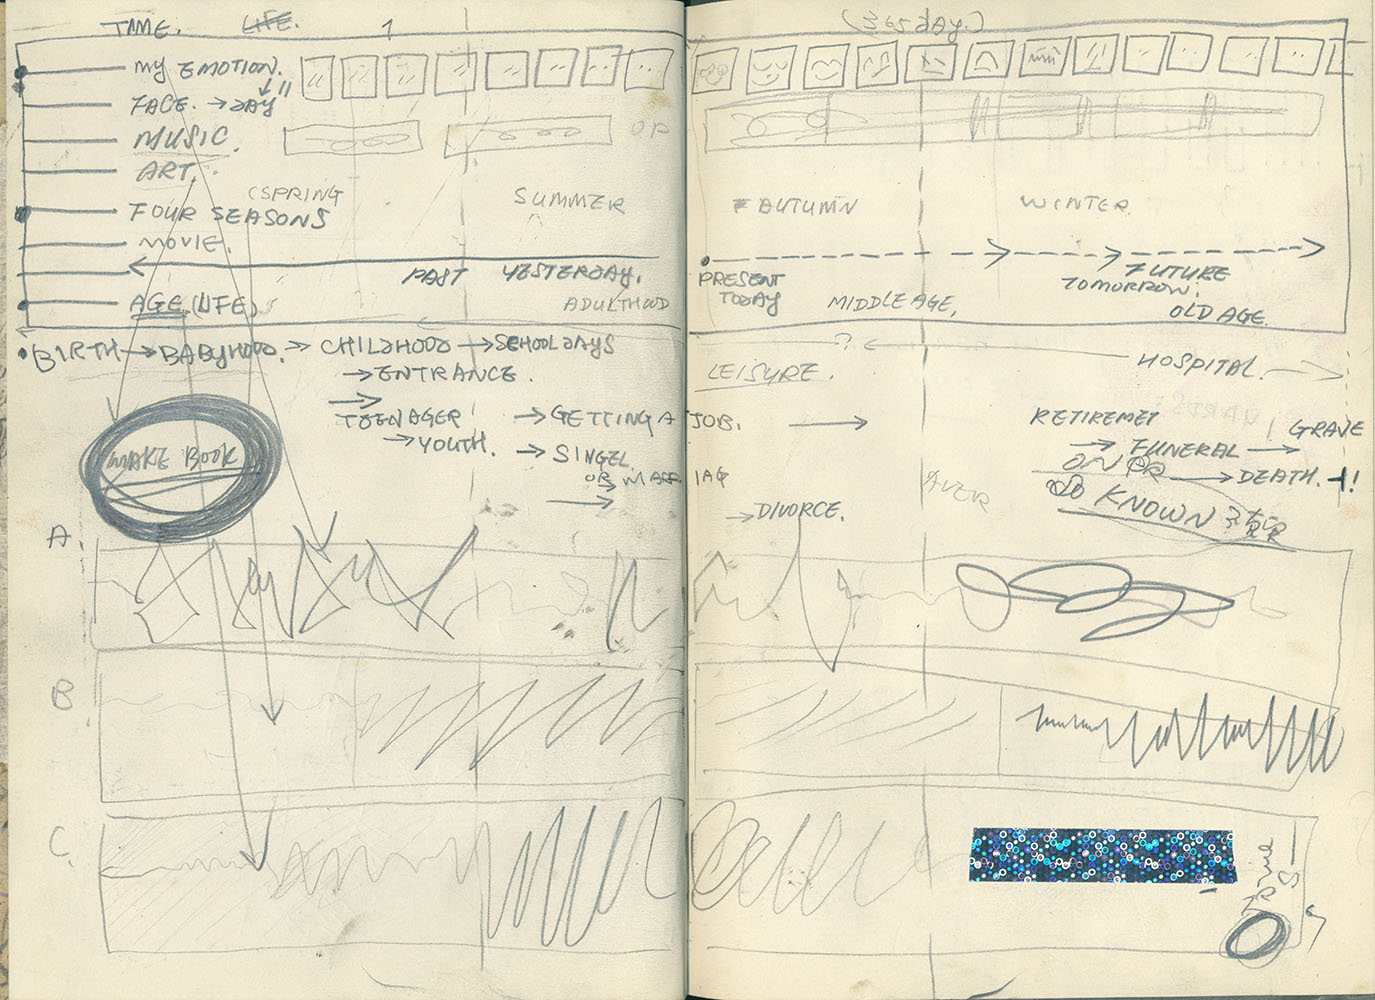 TAME. LIFE. 1 (365 DAY.)
MY EMOTION.
FACE. → DAY "
MUSIC.
ART.
(SPRING SUMMER AUTUMN WINTER.
FOUR SEASONS
MOVIE.
PAST YESTERDAY. PRESENT TODAY TOMORROW. FUTURE
AGE (LIFE) ADULTHOOD MIDDLE AGE, OLD AGE.
• BIRTH → BABYHOOD. → CHILDHOOD → SCHOOL DAYS
→ ENTRANCE. LEISURE. ? HOSPITAL.
→ TEENAGER → GETTING A JOB. → RETIREMET GRAVE
→ YOUTH. → SINGEL. → FUNERAL →
OR MARRIAG ON OR → DEATH. !
→ DIVORCE. KNOWN
MAKE BOOK
A.
B
C.